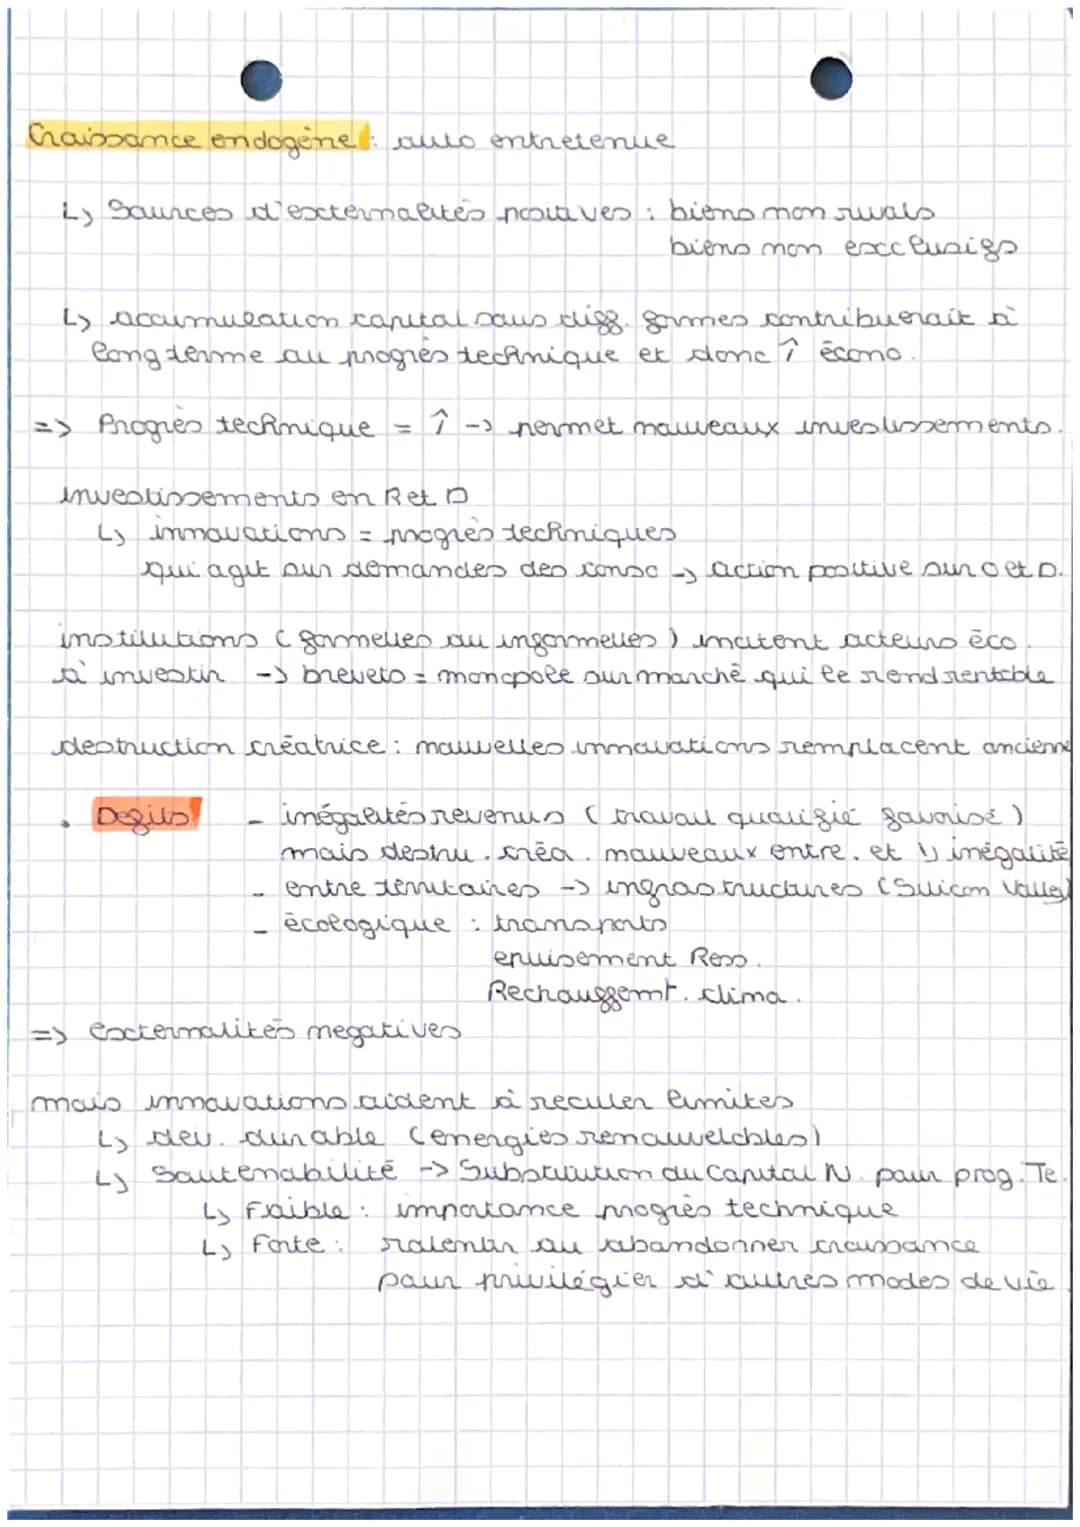 Croissance endogène : auto entretenue
↳ Sources d'externalités positives : biens non rivals
biens non exclusifs
↳ accumulation capital sous diff. formes contribuerait à
long terme au progrès technique et donc ↑ écono.
=> Progrès technique = ↑ -> permet nouveaux investissements.
investissements en R et D
↳ innovations = progrès techniques
qui agit sur demandes des conso -> action positive sur O et D.
institutions (formelles ou informelles) incitent acteurs éco.
à investir -> brevets = monopole sur marché qui le rend rentable
destruction créatrice : nouvelles innovations remplacent ancienne
• Défits - inégalités revenus (travail qualifié favorisé)
mais destru. créa. nouveaux entre. et ↘ inégalité
- entre territoires -> infrastructures (Silicon Valley)
- écologique : transports
épuisement Ress.
Rechauffemt. clima.
=> externalités négatives
mais innovations aident à reculer limites
↳ dev. durable (énergies renouvelables)
↳ Soutenabilité -> Substitution du Capital N. pour prog. Te.
↳ Faible : importance progrès technique
↳ Forte : ralentir ou abandonner croissance
pour privilégier d'autres modes de vie